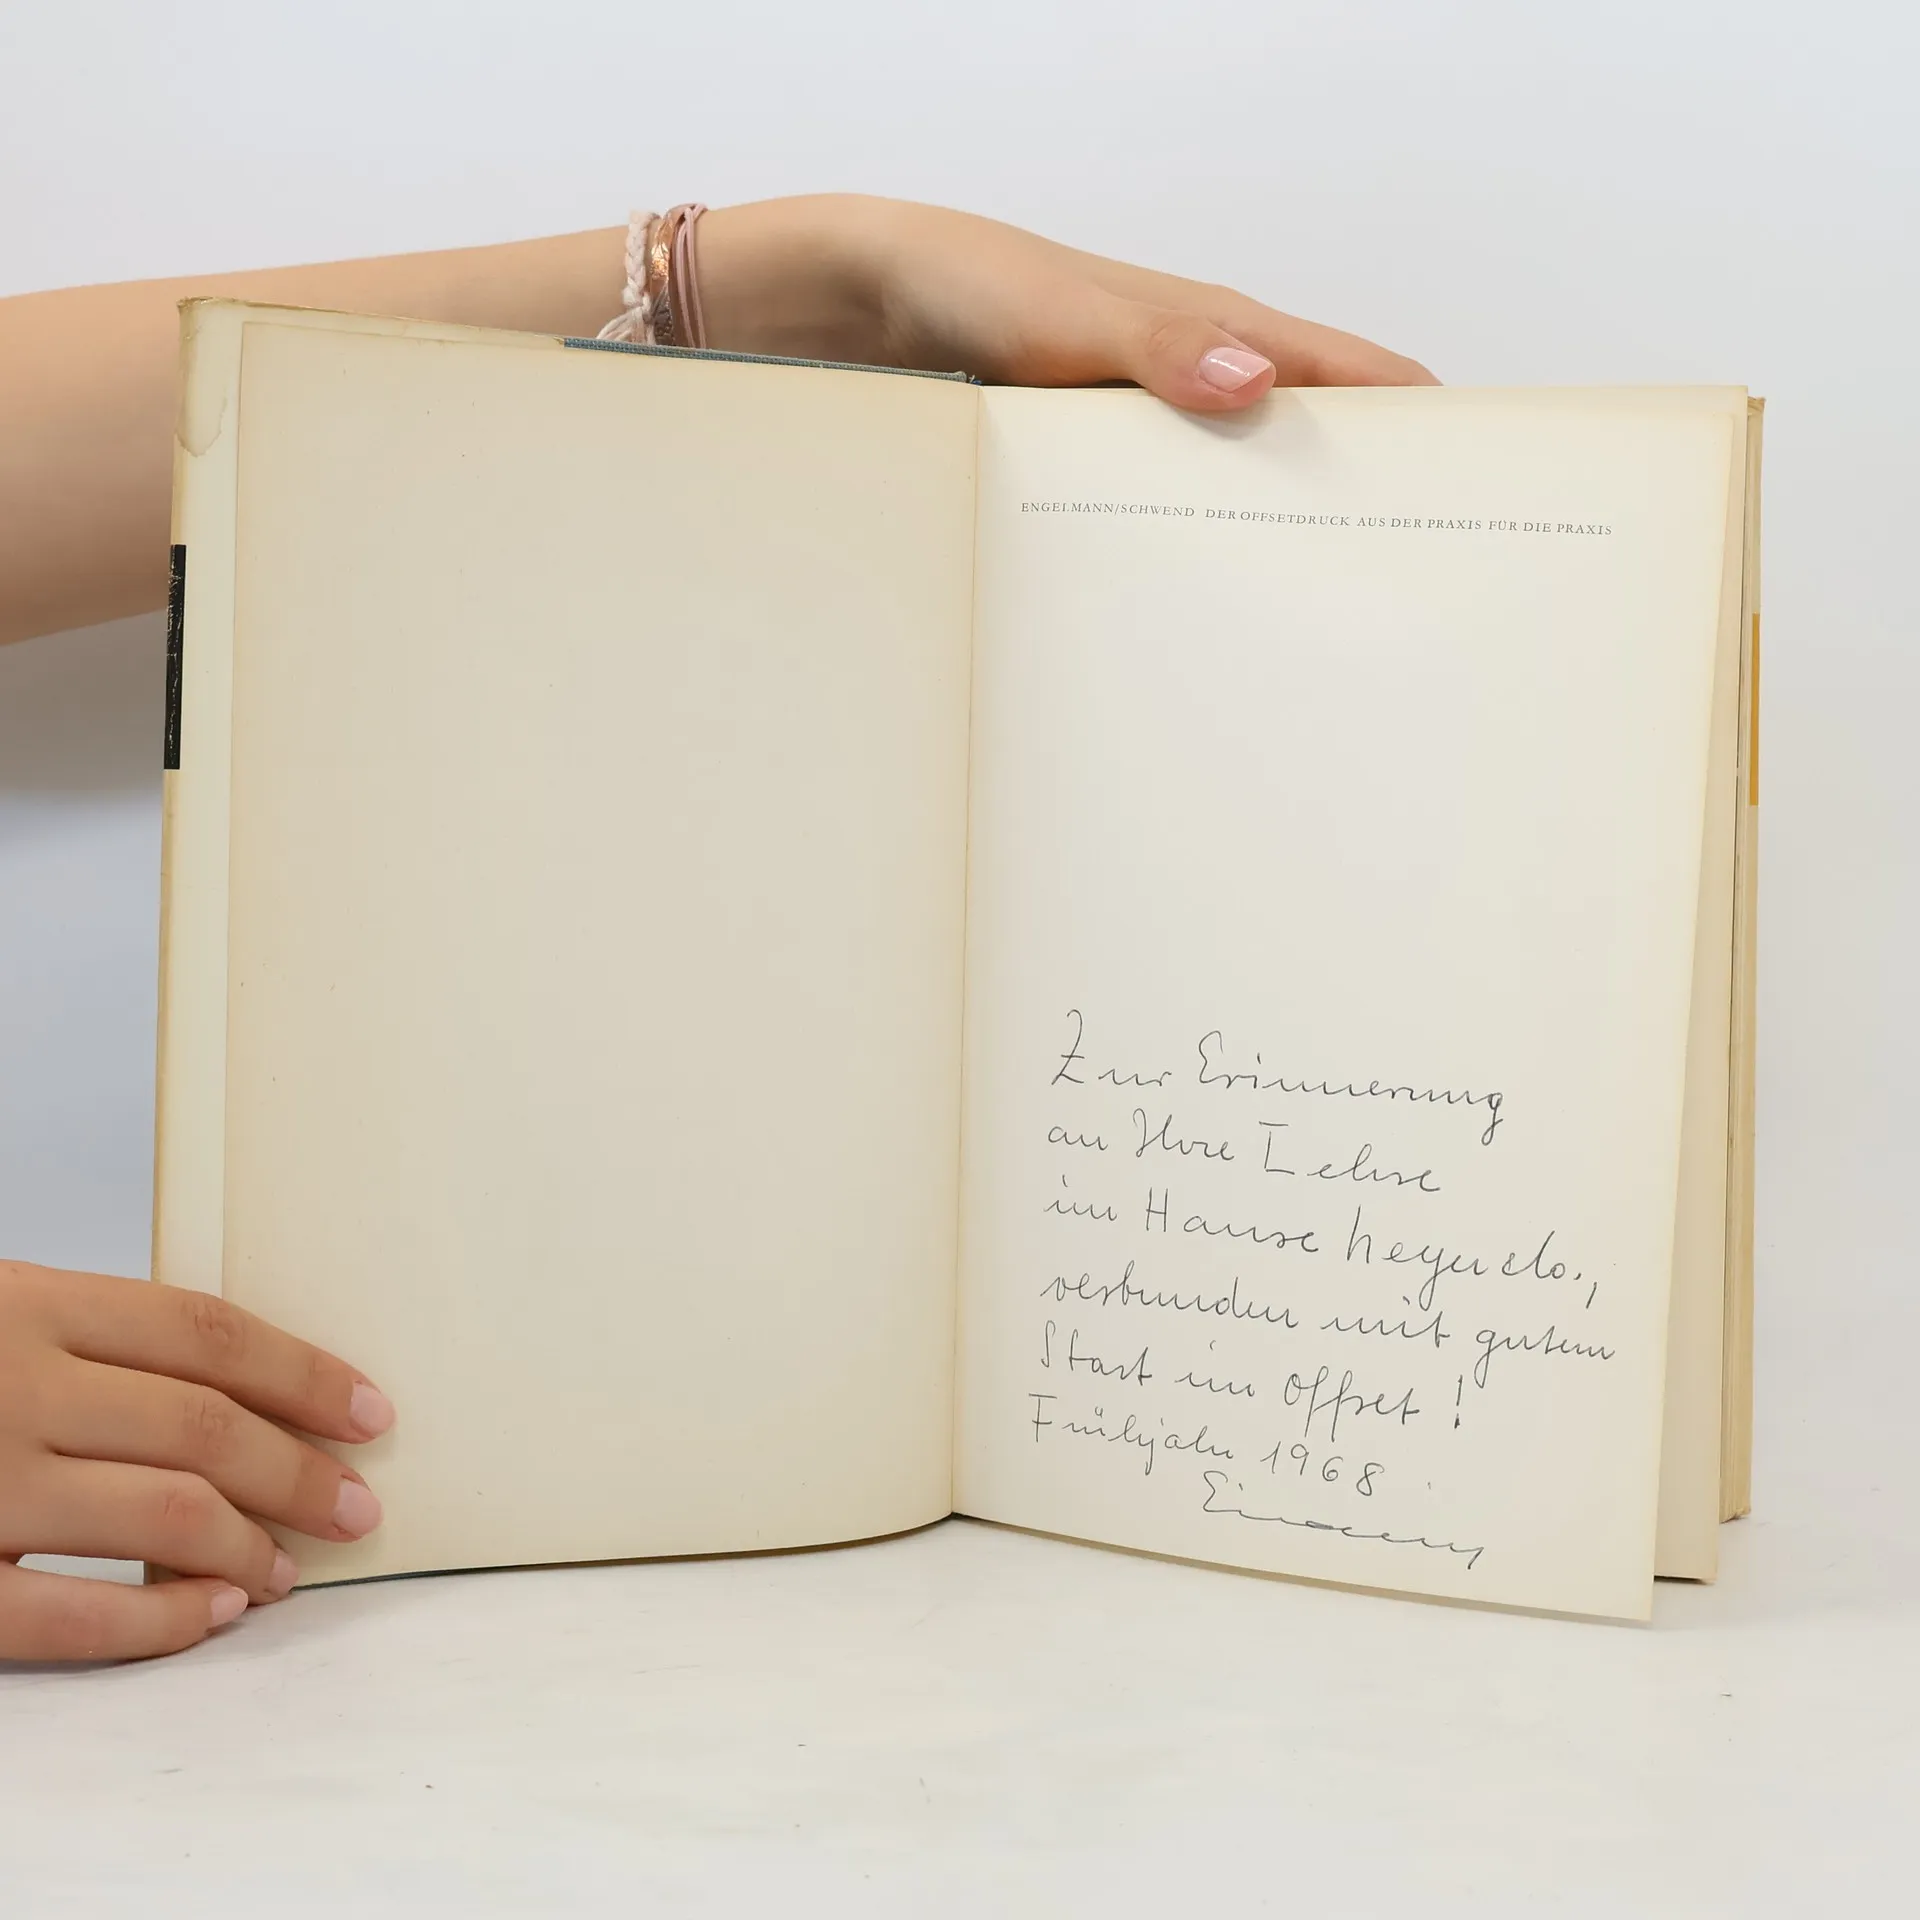 ENGELMANN/SCHWEND DER OFFSETDRUCK AUS DER PRAXIS FÜR DIE PRAXIS
Zur Erinnerung
an Ihre Lehre
im Hause
verbunden mit gutem
Start im Offset!
Frühjahr 1968